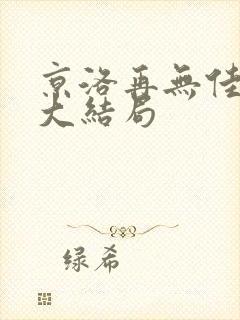 京洛再無佳
大結局
绿希